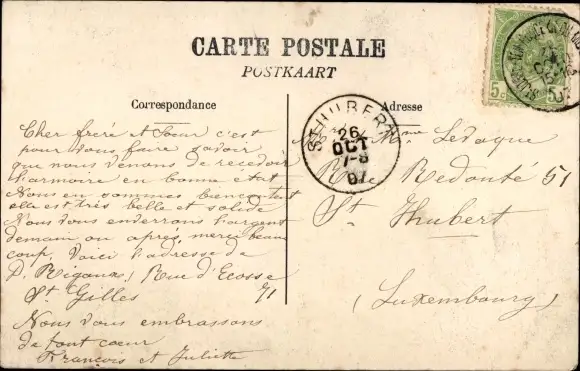 CARTE POSTALE
POSTKAART
Correspondance
Cher frère et Soeur c'est
pour vous faire savoir
que nous venons de recevoir
l'armoire en bonne état
Nous en sommes bien content
elle est très belle et solide
Nous vous enverrons l'argent
demain ou après, merci beau
coup, voici l'adresse de
D. Rigaux, Rue d'Ecosse
St Gilles 71
Nous vous embrassons
de tout coeur
François et Juliette
Adresse
Mr & Mme Ledoque
Rue Redouté 51
St Hubert
(Luxembourg)
ST HUBERT
26
OCT
7-8
07
5c 5c